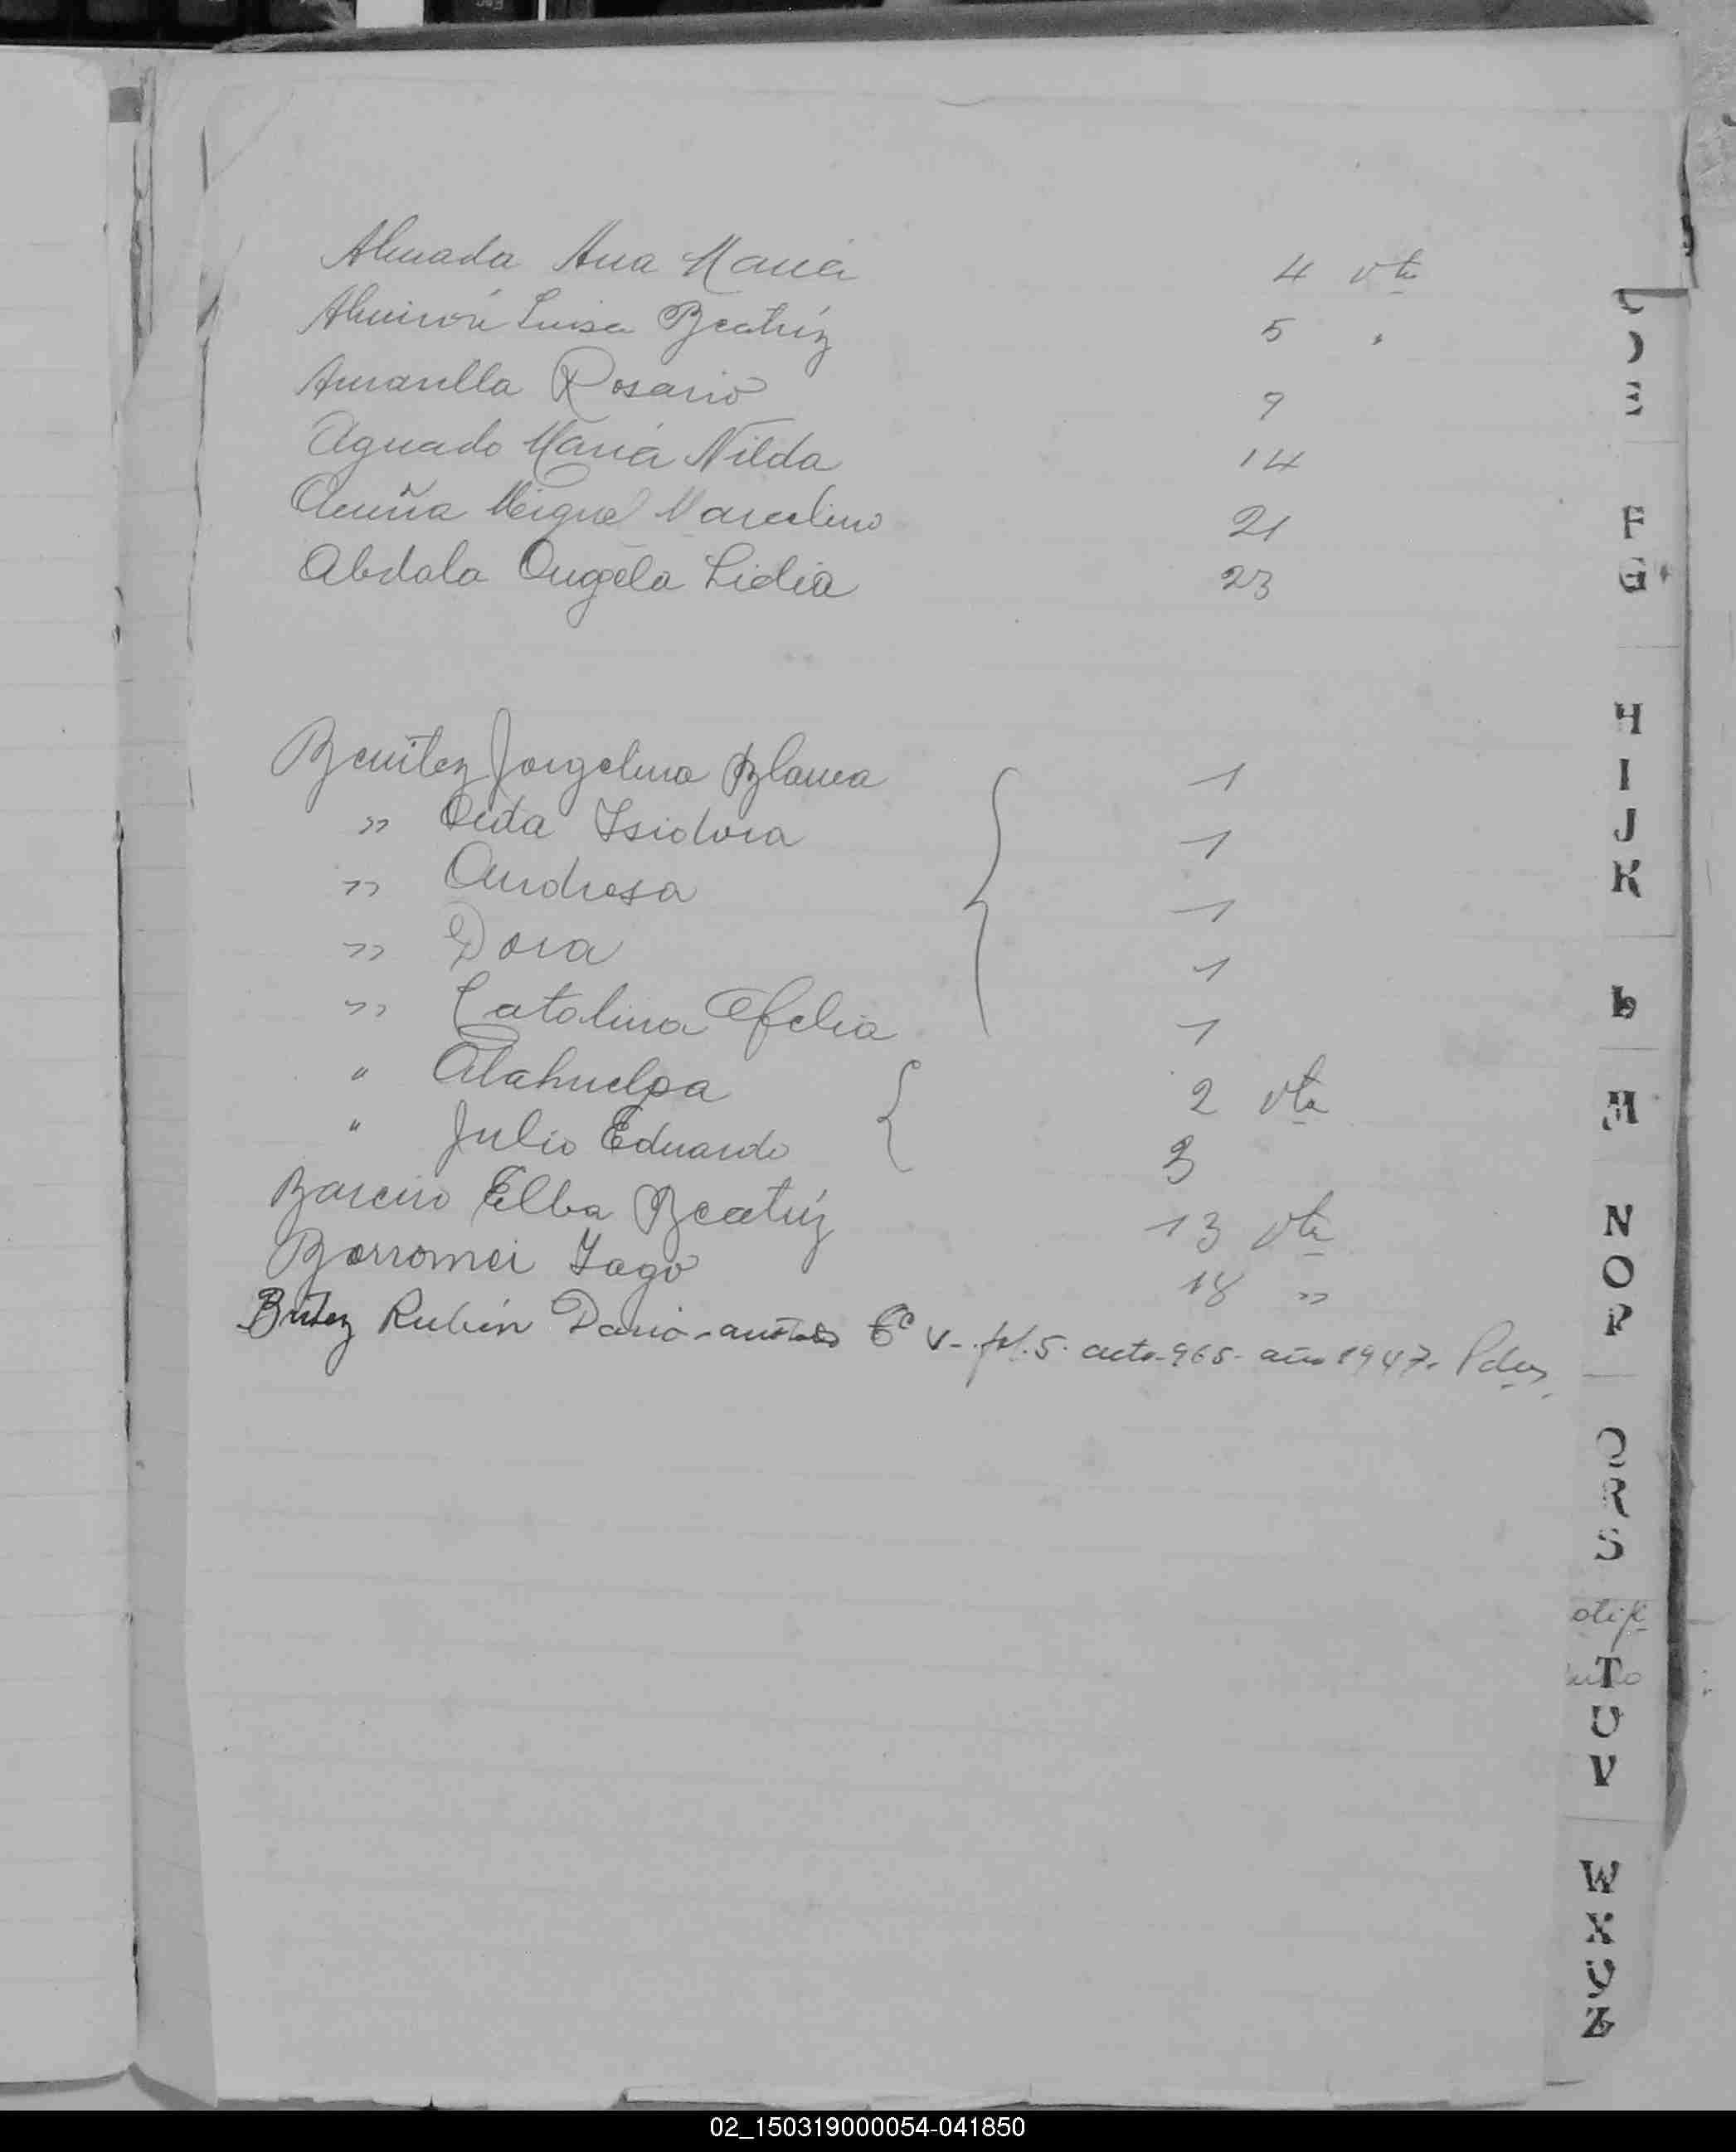 Almada Ana María 4 vta
Almirón Luisa Beatríz 5 "
Amarilla Rosario 9
Aguado María Nilda 14
Acuña Miguel Marcelino 21
Abdala Angela Lidia 23
Benítez Jorgelina Blanca 1
" Isidora 1
" Andresa 1
" Dora 1
" Catalina Ofelia 1
" Atahuelpa 2 vta
" Julio Eduardo 3
Bareiro Elba Beatríz 13 vta
Borromei Yago 18 "
Britez Rubén Dario - V - fol. 5. acta - 965 - año 1947.
D
E
F
G
H
I
J
K
L
M
N
O
P
Q
R
S
T
U
V
W
X
Y
Z
02_150319000054-041850